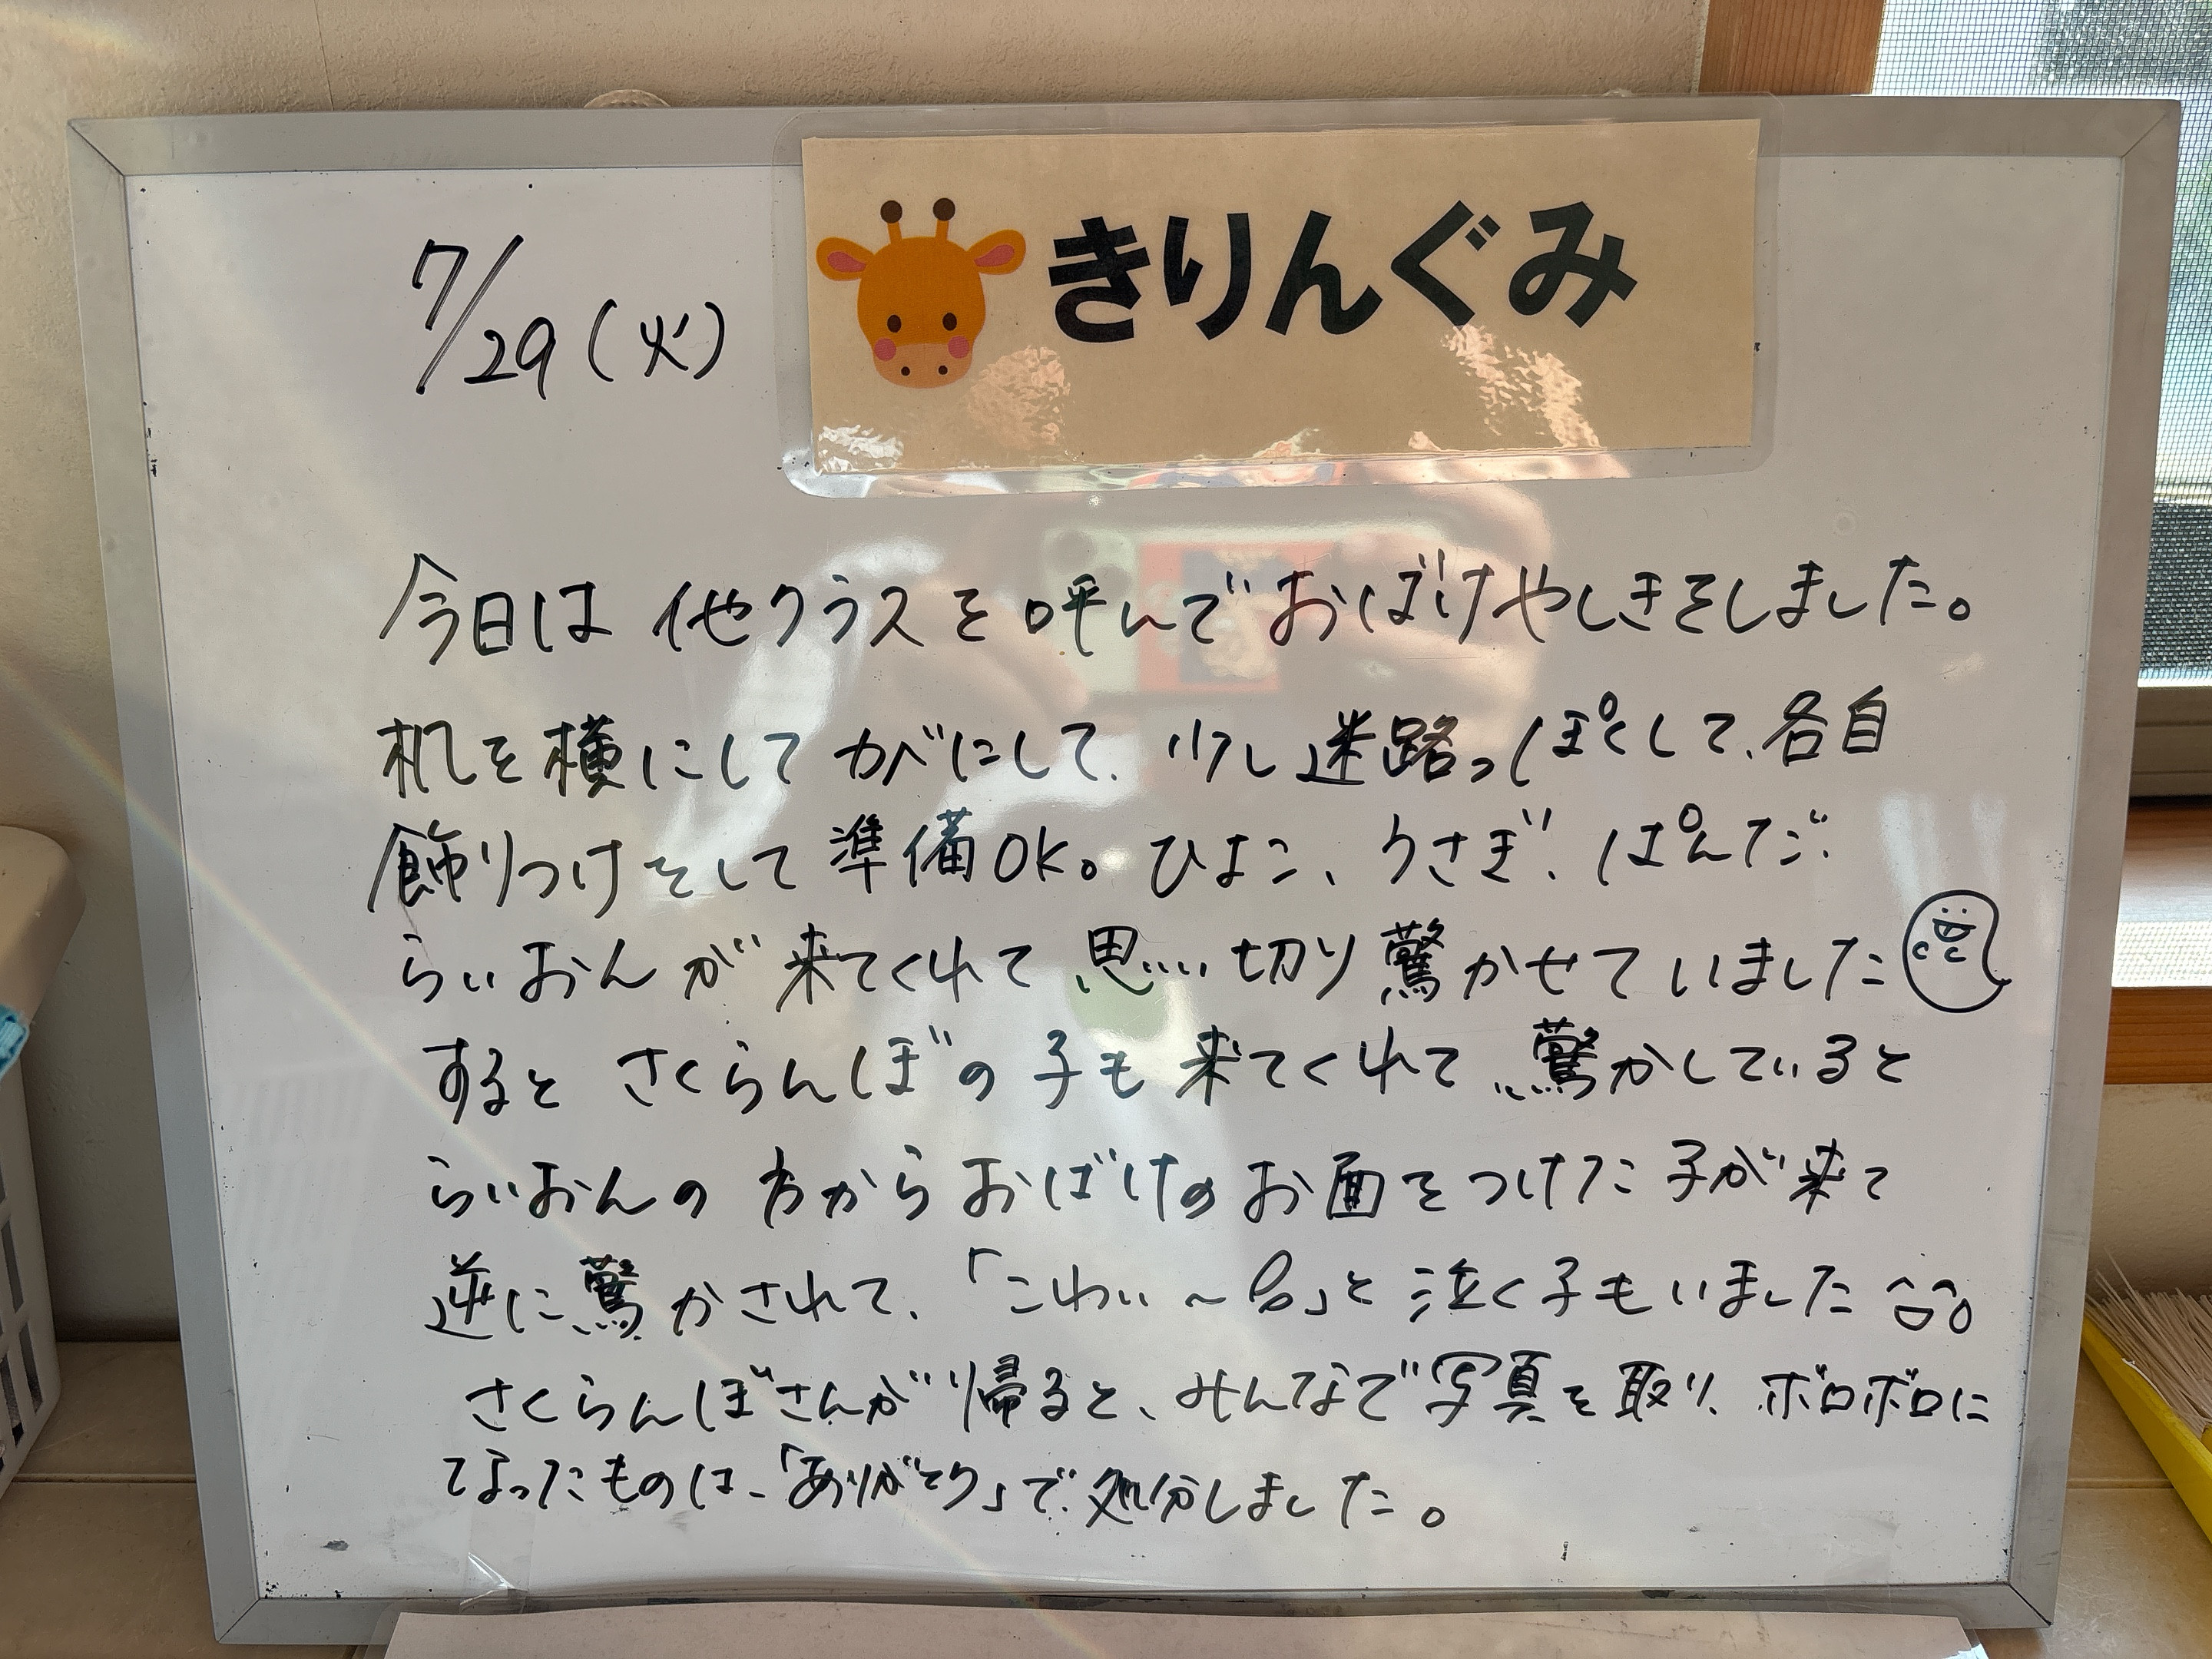 きりんぐみ
7/29(火)
今日は他クラスを呼んでおばけやしきをしました。
机を横にしてかべにして、少し迷路っぽくして、各自
飾りつけをして準備OK。ひよこ、うさぎ、ぱんだ、
らいおんが来てくれて思い切り驚かせていました
するとさくらんぼの子も来てくれて驚かしていると
らいおんの方からおばけのお面をつけた子が来て
逆に驚かされて、「こわい〜」と泣く子もいました
さくらんぼさんが帰ると、みんなで写真を取り、ボロボロに
なったものは、「ありがとう」で処分しました。